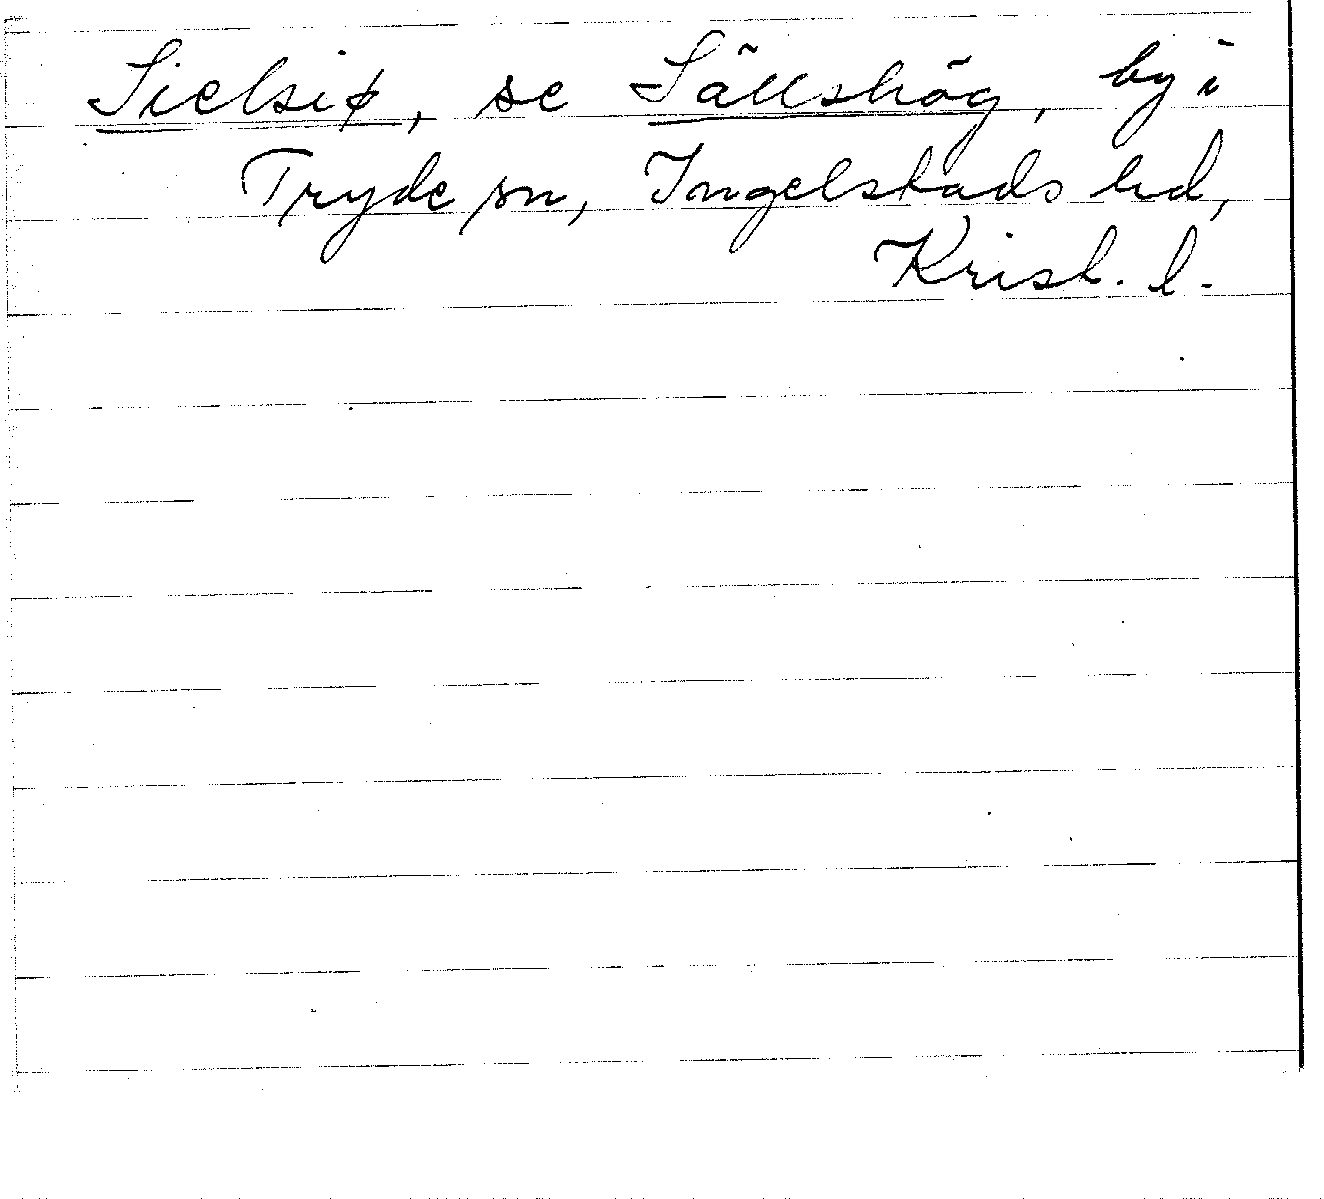 Sielsiø, se Sällshög, by i
Tryde sn, Ingelstads hd,
Krist. l.